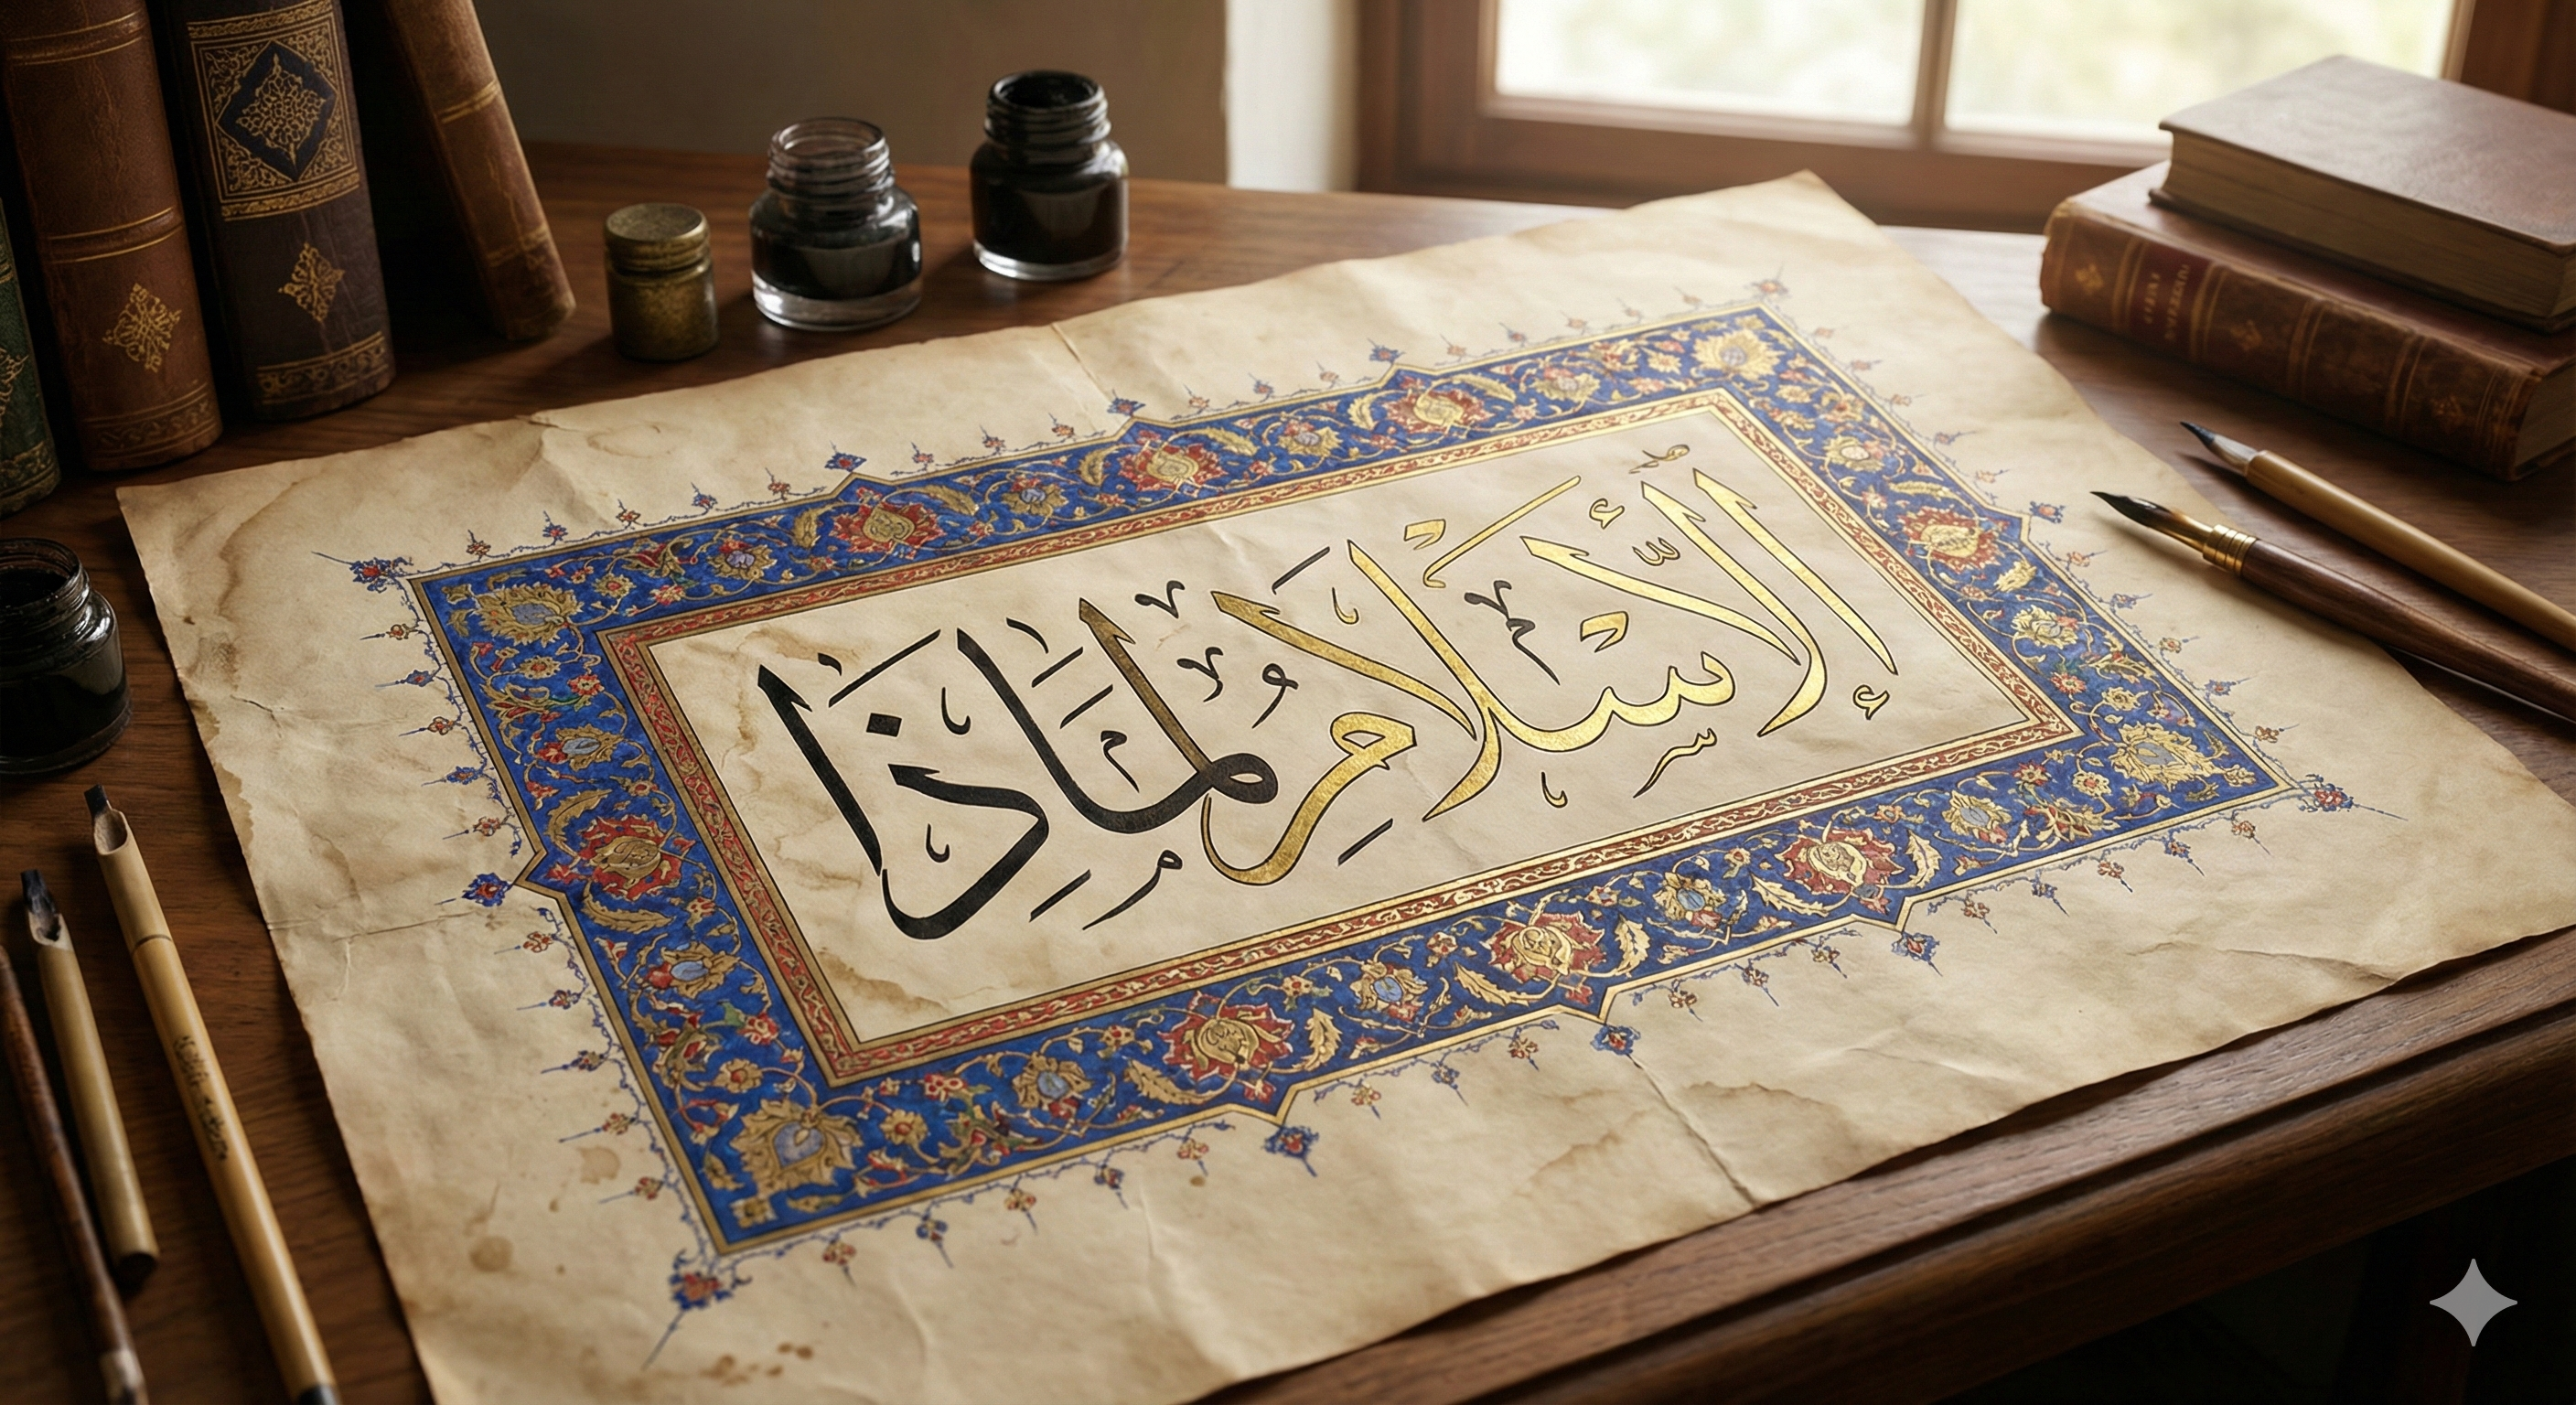 الإسلام لماذا